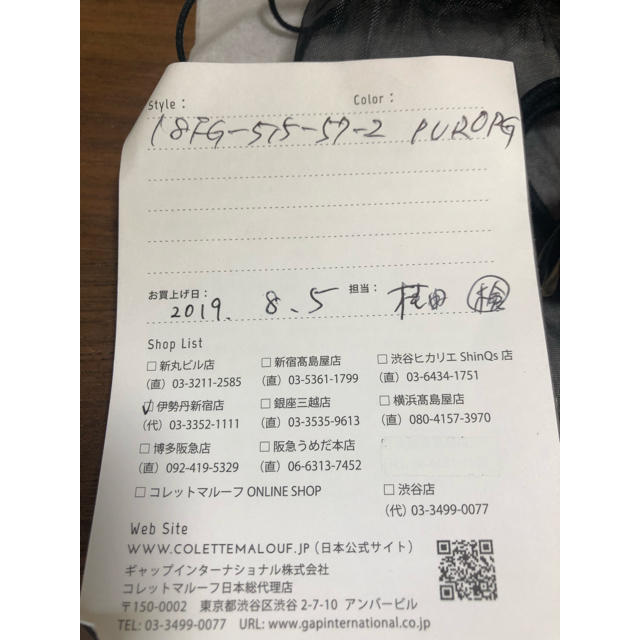 Style : Color :
18FG-575-57-2 PUROPG
お買上げ日: 2019. 8. 5 担当: 桂田 検
Shop List
□ 新丸ビル店 □ 新宿髙島屋店 □ 渋谷ヒカリエ ShinQs 店
(直) 03-3211-2585 (直) 03-5361-1799 (直) 03-6434-1751
☑ 伊勢丹新宿店 □ 銀座三越店 □ 横浜髙島屋店
(代) 03-3352-1111 (直) 03-3535-9613 (直) 080-4157-3970
□ 博多阪急店 □ 阪急うめだ本店
(直) 092-419-5329 (直) 06-6313-7452
□ コレットマルーフ ONLINE SHOP □ 渋谷店
(代) 03-3499-0077
Web Site
WWW.COLETTEMALOUF.JP (日本公式サイト)
ギャップインターナショナル株式会社
コレットマルーフ日本総代理店
〒150-0002 東京都渋谷区渋谷 2-7-10 アンバービル
TEL: 03-3499-0077 URL: www.gapinternational.co.jp